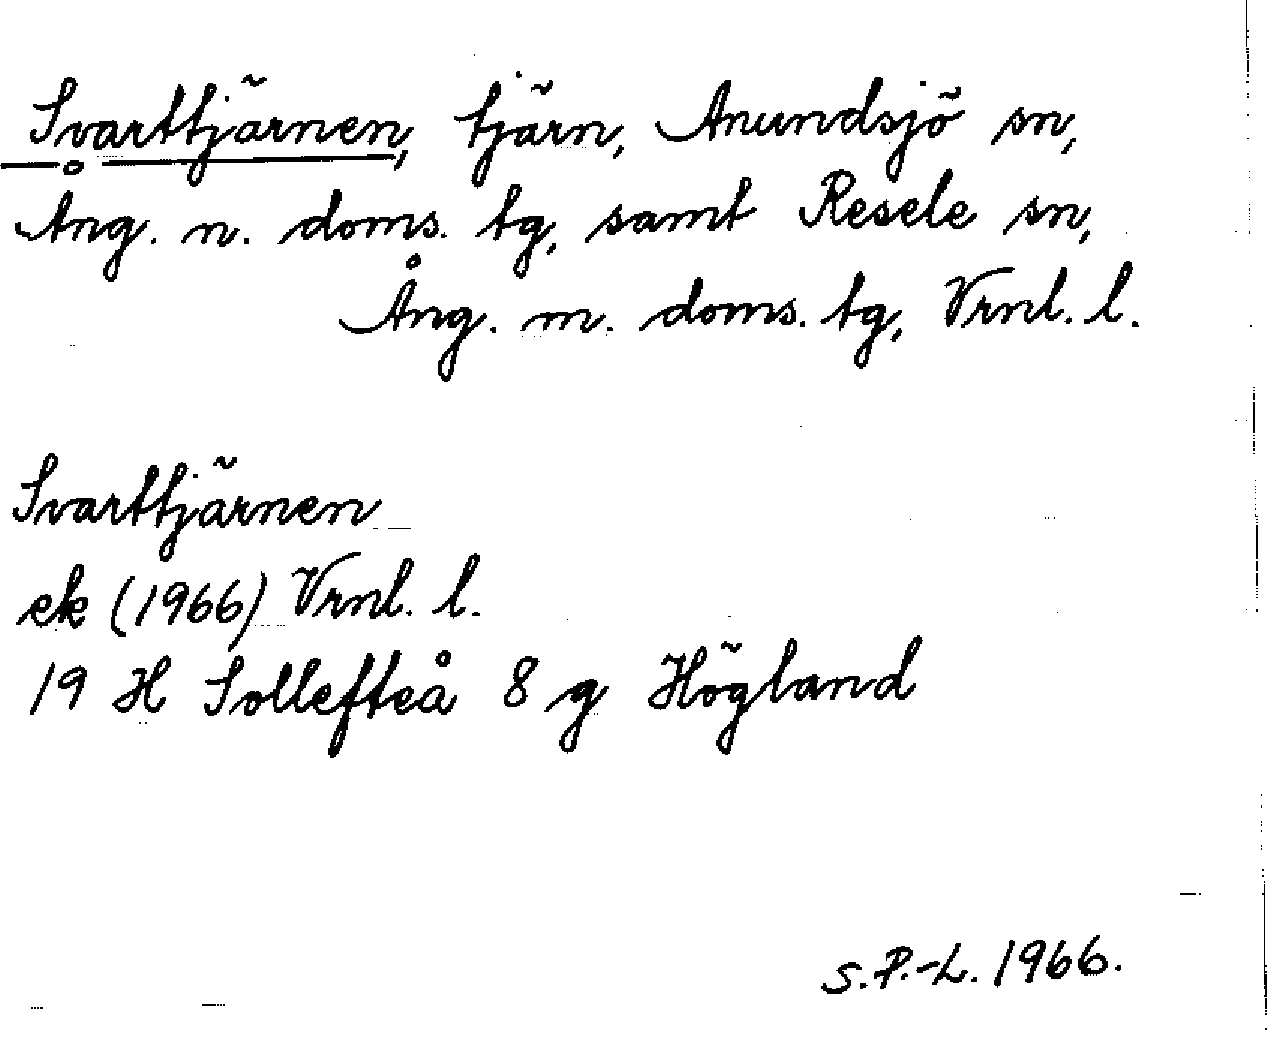 Svarttjärnen, tjärn, Anundsjö sn,
Ång. n. doms. tg, samt Resele sn,
Ång. m. doms. tg, Vrnl. l.
Svarttjärnen
ek (1966) Vrnl. l.
19 H Sollefteå 8 g Högland
S.P.-L. 1966.